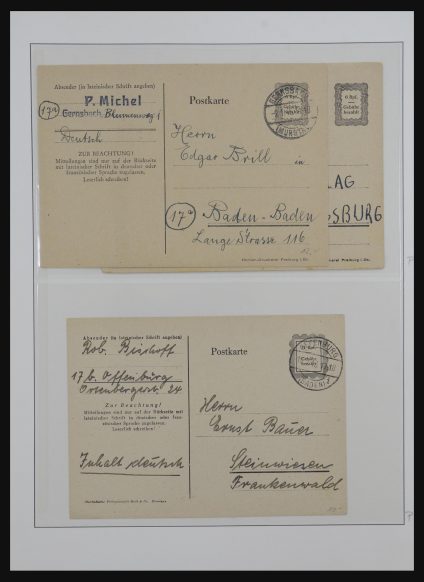 Absender (in lateinischer Schrift angeben)
P. Michel
17a Gernsbach, Blumenweg 1
Deutsch
ZUR BEACHTUNG!
Mitteilungen sind nur auf der Rückseite
in deutscher oder
französischer Sprache zugelassen.
Leserlich schreiben!
Postkarte
GERNSBACH
(MURGTAL)
6 Rpf.
Gebühr
bezahlt
Herrn
Edgar Brill
in
17a Baden-Baden
Lange Strasse 116
LAG
SBURG
Absender (in lateinischer Schrift angeben)
Rob. Bischoff
17 b. Offenburg
Ortenbergerstr. 24
Zur Beachtung!
Mitteilungen sind nur auf der Rückseite mit
lateinischer Schrift in deutscher oder
französischer Sprache zugelassen.
Leserlich schreiben!
Inhalt deutsch
Postkarte
OFFENBURG
(BADEN)
Gebühr
bezahlt
Herrn
Ernst Bauer
Steinwiesen
Frankenwald